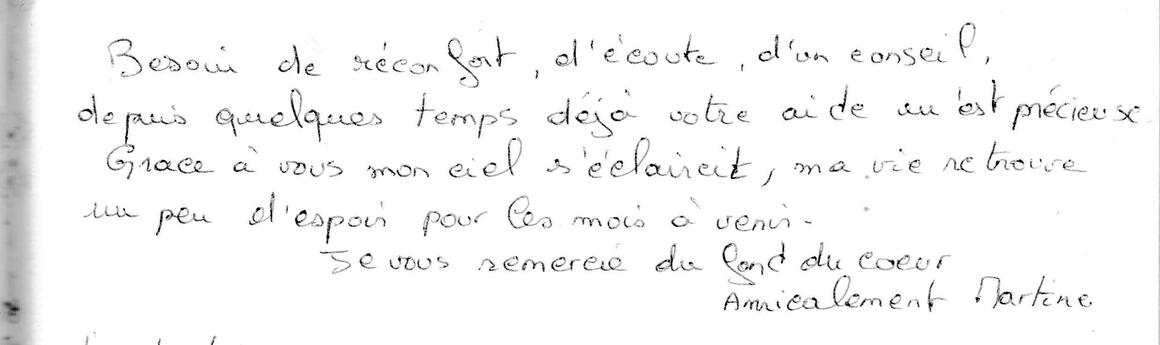 Besoin de réconfort, d'écoute, d'un conseil,
depuis quelques temps déjà votre aide m'est précieuse.
Grace à vous mon ciel s'éclaircit, ma vie retrouve
un peu d'espoir pour les mois à venir.
Je vous remercie du fond du coeur
Amicalement Martine